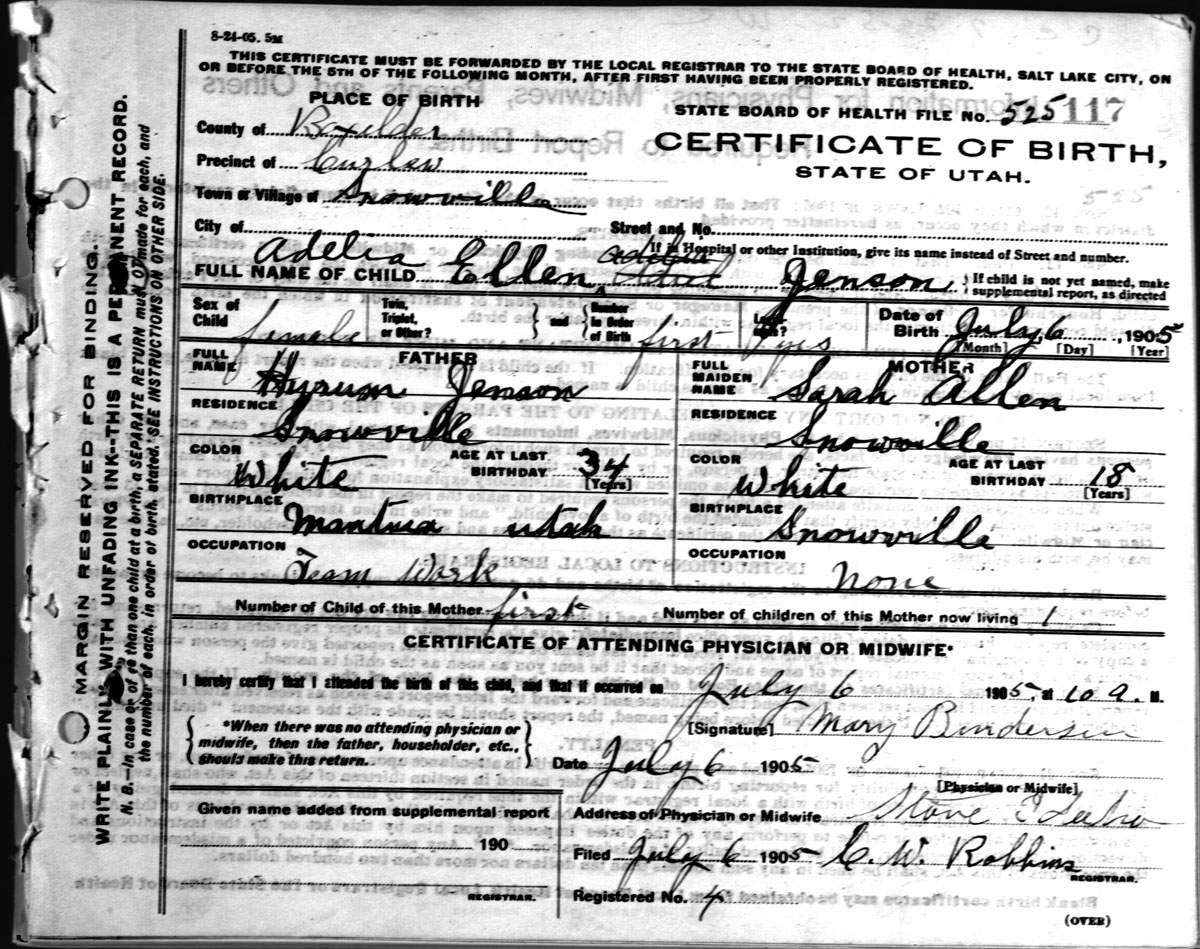 8-24-05. 5M
THIS CERTIFICATE MUST BE FORWARDED BY THE LOCAL REGISTRAR TO THE STATE BOARD OF HEALTH, SALT LAKE CITY, ON
OR BEFORE THE 5TH OF THE FOLLOWING MONTH, AFTER FIRST HAVING BEEN PROPERLY REGISTERED.
PLACE OF BIRTH
STATE BOARD OF HEALTH FILE No. 525 117
County of Boxelder
CERTIFICATE OF BIRTH,
Precinct of Curlew
STATE OF UTAH.
Town or Village of Snowville
525
City of Street and No.
If in Hospital or other Institution, give its name instead of Street and number.
FULL NAME OF CHILD Adelia Ellen Jenson { If child is not yet named, make supplemental report, as directed
Sex of Child female
Twin, Triplet, or Other? } and { Number in Order of Birth first
yes
Date of Birth July 6, 1905
[Month] [Day] [Year]
FATHER
FULL NAME Hyrum Jenson
RESIDENCE Snowville
COLOR White AGE AT LAST BIRTHDAY 34 [Years]
BIRTHPLACE Mantua utah
OCCUPATION Team Work
MOTHER
FULL MAIDEN NAME Sarah Allen
RESIDENCE Snowville
COLOR White AGE AT LAST BIRTHDAY 18 [Years]
BIRTHPLACE Snowville
OCCUPATION none
Number of Child of this Mother first Number of children of this Mother now living 1
CERTIFICATE OF ATTENDING PHYSICIAN OR MIDWIFE*
I hereby certify that I attended the birth of this child, and that it occurred on July 6 1905, at 10 a. M.
{ *When there was no attending physician or midwife, then the father, householder, etc., should make this return. }
[Signature] Mary
Date July 6 1905
[Physician or Midwife]
Given name added from supplemental report
190
REGISTRAR.
Address of Physician or Midwife Stone Idaho
Filed July 6 1905 C. W. Robbins
REGISTRAR.
Registered No. 4
(OVER)
MARGIN RESERVED FOR BINDING.
WRITE PLAINLY WITH UNFADING INK--THIS IS A PERMANENT RECORD.
N. B.--In case of more than one child at a birth, a SEPARATE RETURN must be made for each, and
the number of each, in order of birth, stated. SEE INSTRUCTIONS ON OTHER SIDE.